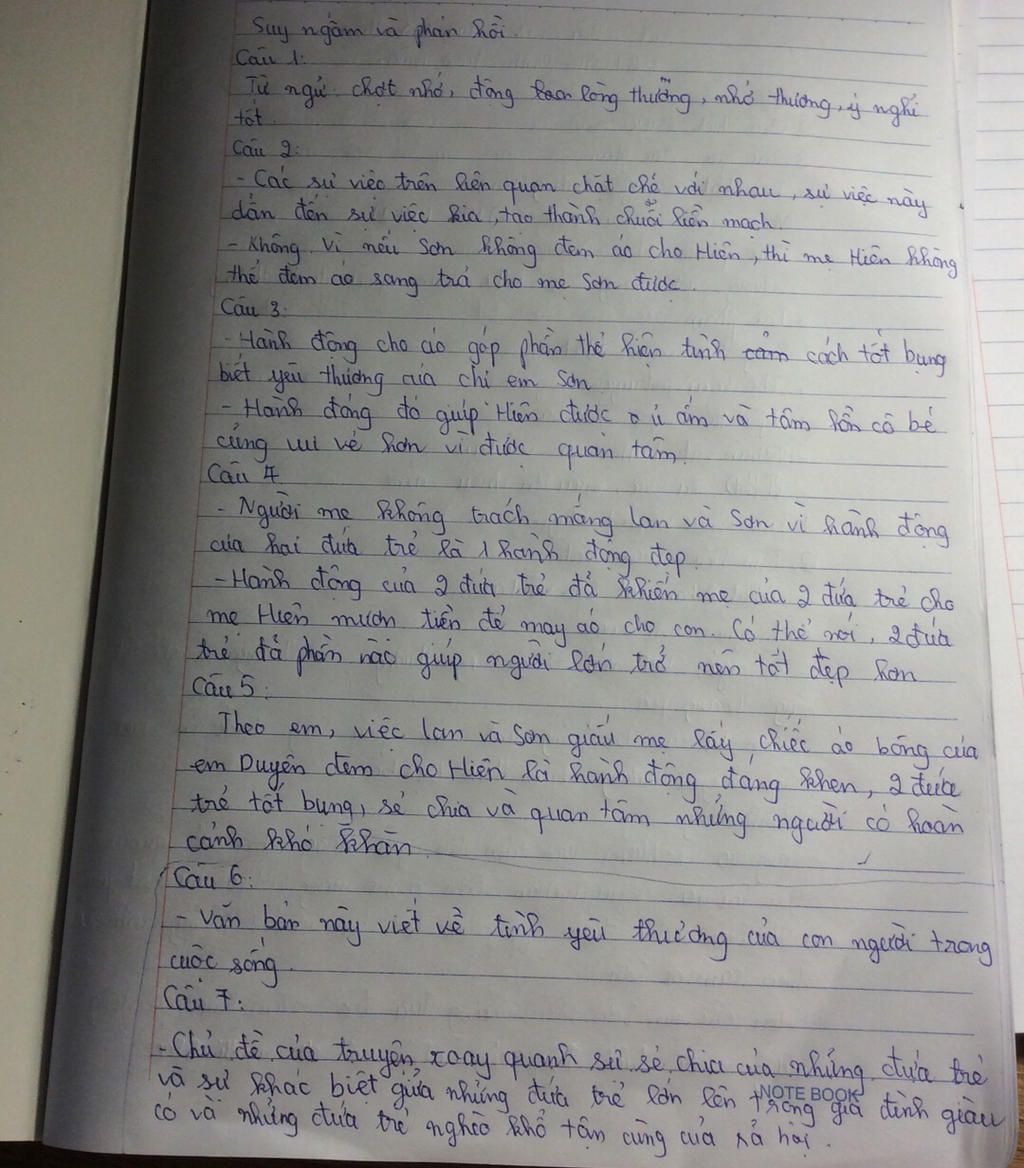 Suy ngẫm và phản hồi.
Câu 1:
Từ ngữ: chợt nhớ, động lòng thương, nhớ thương, ý nghĩ
tốt.
Câu 2:
- Các sự việc trên liên quan chặt chẽ với nhau, sự việc này
dẫn đến sự việc kia, tạo thành chuỗi liền mạch.
- Không. vì nếu Sơn không đem áo cho Hiên, thì mẹ Hiên không
thể đem áo sang trả cho mẹ Sơn được.
Câu 3:
- Hành động cho áo góp phần thể hiện tính cách tốt bụng
biết yêu thương của chị em Sơn
- Hành động đó giúp Hiên được ủ ấm và tâm hồn cô bé
cũng vui vẻ hơn vì được quan tâm.
Câu 4
- Người mẹ không trách mắng lan và Sơn vì hành động
của hai đứa trẻ là 1 hành động đẹp.
- Hành động của 2 đứa trẻ đã khiến mẹ của 2 đứa trẻ cho
mẹ Hiên mượn tiền để may áo cho con. Có thể nói, 2 đứa
trẻ đã phần nào giúp người lớn trở nên tốt đẹp hơn
Câu 5:
Theo em, việc lan và Sơn giấu mẹ lấy chiếc áo bông của
em Duyên đem cho Hiên là hành động đáng khen, 2 đứa
trẻ tốt bụng, sẻ chia và quan tâm những người có hoàn
cảnh khó khăn.
Câu 6:
- văn bản này viết về tình yêu thương của con người trong
cuộc sống.
Câu 7:
- Chủ đề của truyện xoay quanh sự sẻ chia của những đứa trẻ
và sự khác biệt giữa những đứa trẻ lớn lên trong gia đình giàu
NOTE BOOK
có và những đứa trẻ nghèo khổ tận cùng của xã hội.